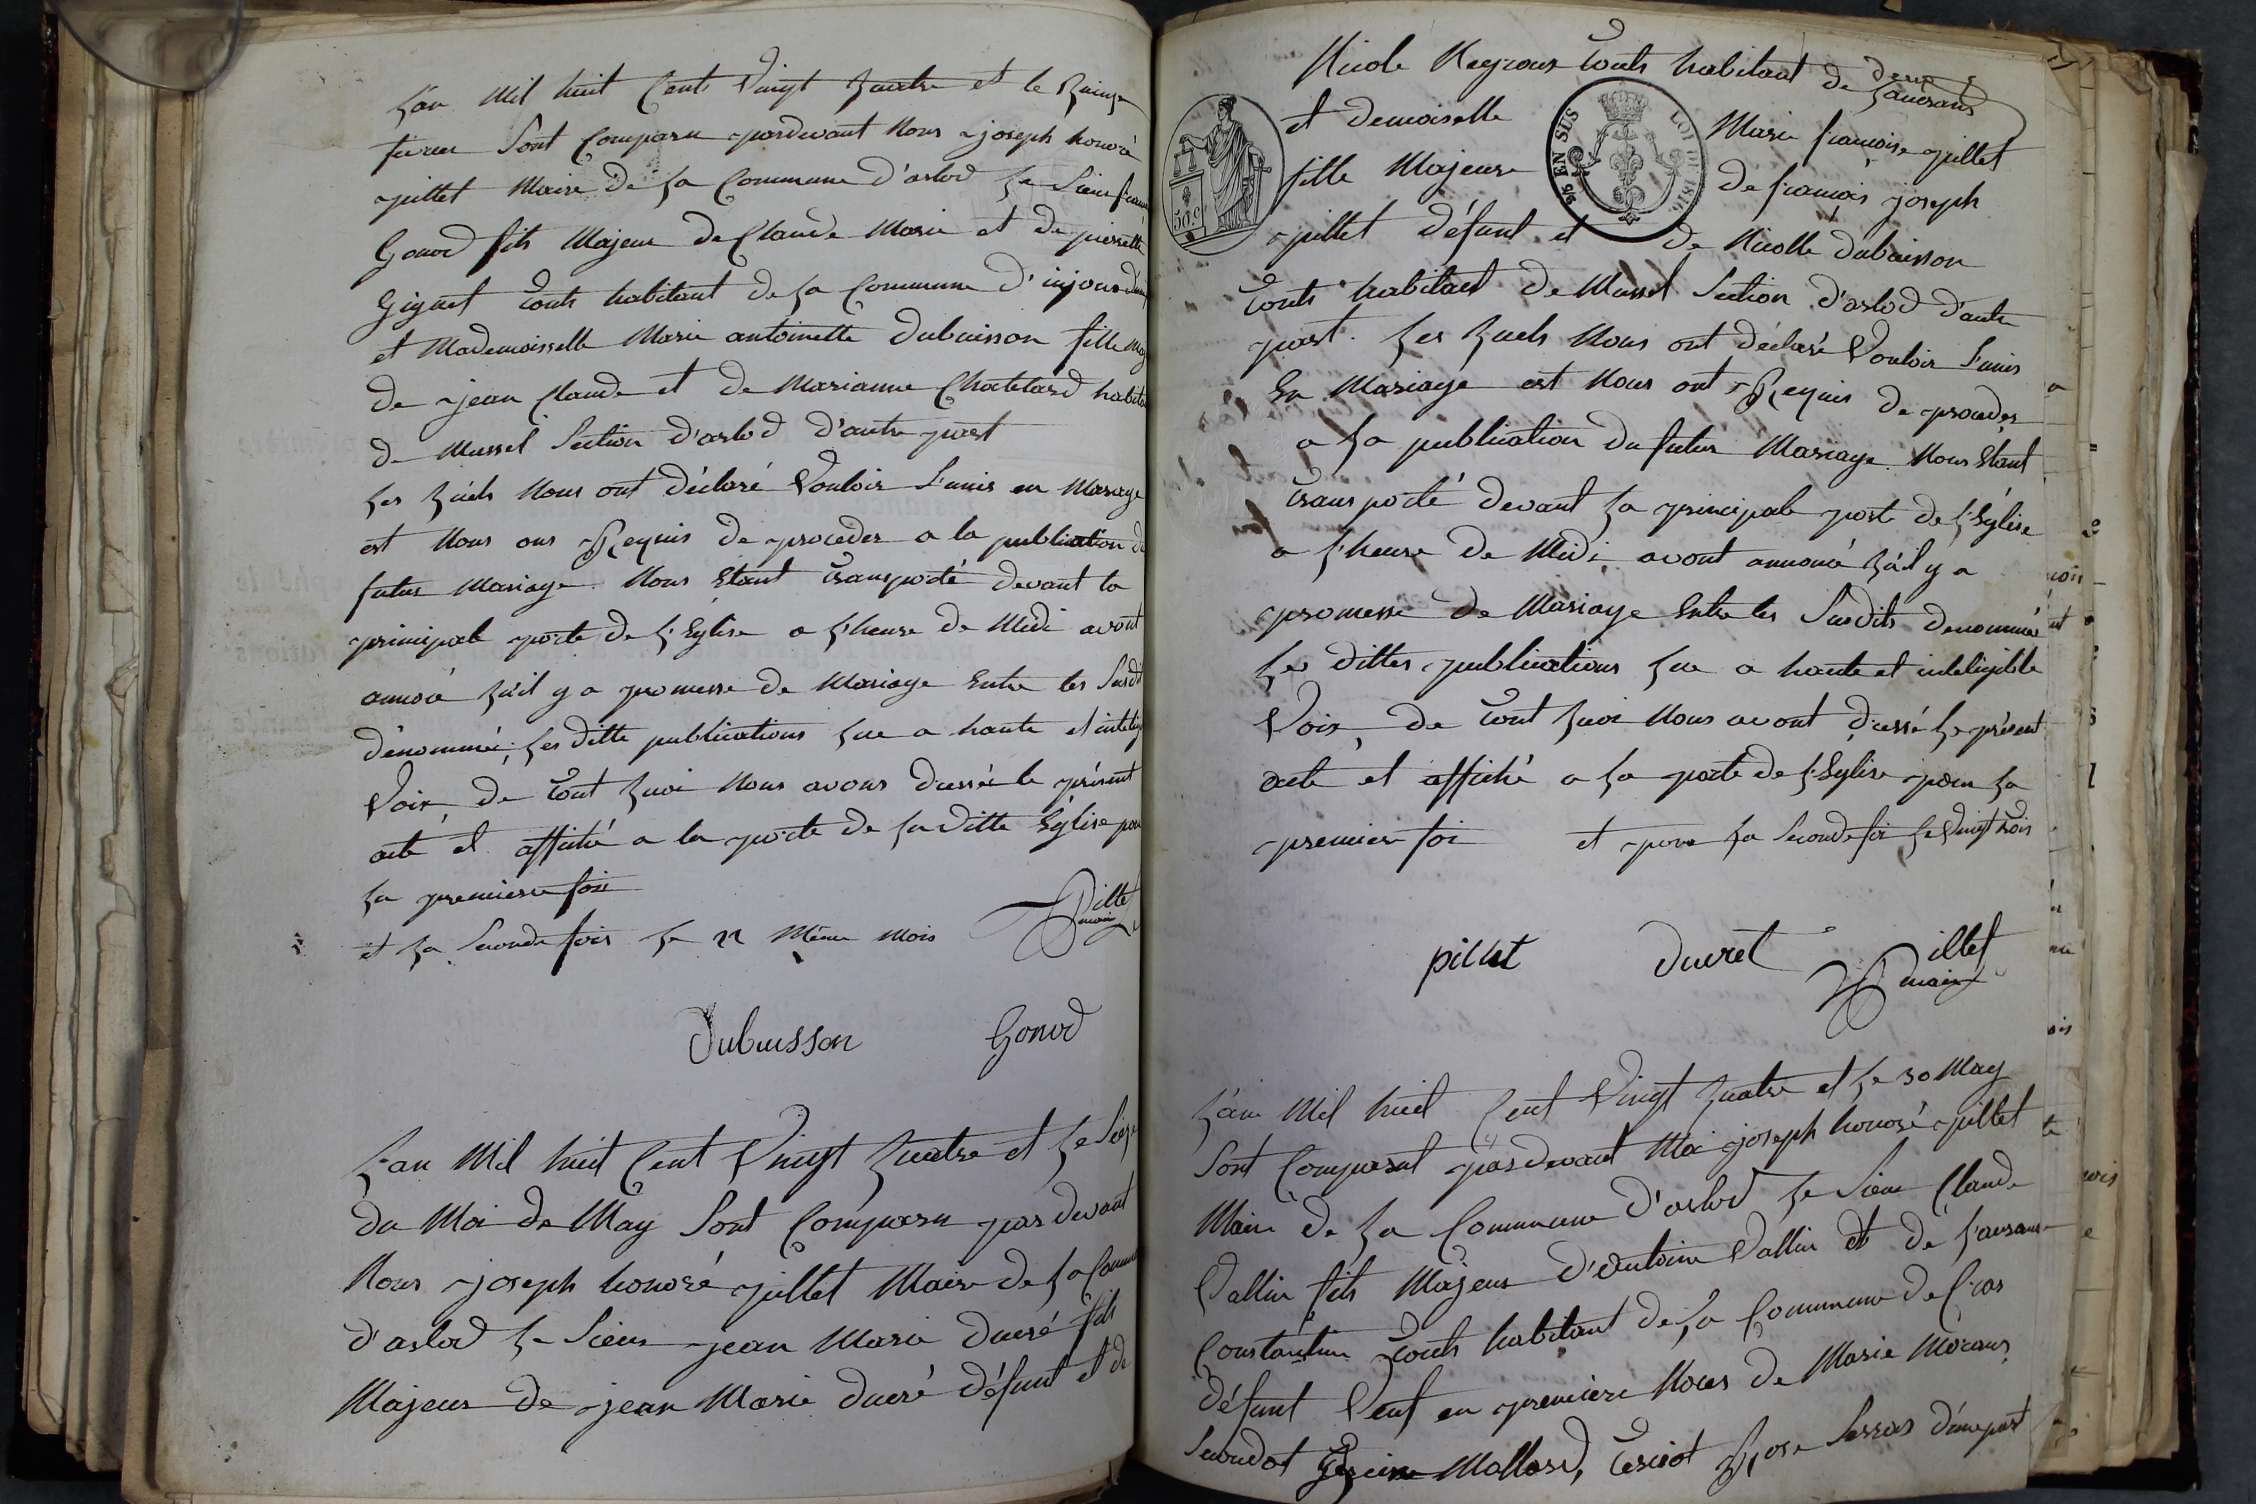 L'an mil huit Cent Vingt quatre et le quinze
fevrier Sont Comparu pardevant Nous joseph honoré
pillet Maire de La Commune d'arlod Le Sieur
Gonod fils Majeur de Claude Marie et de pierrette
Gignet touts habitant de La Commune d'injoux
et Mademoisselle Marie antoinette Dubuisson fille
de jean Claude et de Marianne Chatelard
de Mussel Section d'arlod d'autre part
Les quels Nous ont déclaré Vouloir S'unir en Mariage
est Nous ons Requis de proceder a la publication
futur Mariage. Nous Etant transporté devant la
principale porte de L'Eglise a L'heure de Midi avont
annocé qu'il y a promesse de Mariage Entre les Susdit
dénommé. Les ditte publications Lue a haute et
Voix, de tout quoi Nous avons dressé le présent
acte et affiché a la porte de La ditte Eglise pour
La premiere fois
et La Seconde fois Le 22 Même Mois
Pillet
maire
Dubuisson Gonod
L'an Mil huit Cent Vingt quatre et Le Seize
du Moi de May Sont Comparu par devant
Nous joseph honoré pillet Maire de La
d'arlod Le Sieur jean Marie ducré fils
Majeur de jean Marie ducré défunt et de
Nicole touts habitant de
et demoiselle Marie françoise pillet
fille Majeure de françois joseph
pillet défunt et de Nicolle dubuisson
touts habitact de Mussel Section d'arlod d'autre
part. Les quels Nous ont déclaré Vouloir S'unir
En Mariage est Nous ont Requis de proceder
a La publication du futur Mariage. Nous Etant
transporté devant La principale porte de L'Eglise
a L'heure de Midi avont annoncé qu'il y a
promesse de Mariage Entre les Susdits denommé
Les dittes publications Lue a haute et inteligible
Voix, de tout quoi Nous avont dressé Le présent
acte et affiché a La porte de L'Eglise pour La
premiere foi et pour La Seconde foi Le Vingt trois
50 c
5/5 EN SUS
LOI DE 1816
pillet ducret Pillet
maire
L'an Mil huit Cent Vingt quatre et Le 30 May
Sont Comparut pardevant Moi joseph honoré pillet
Maire de La Commune d'arlod Le Sieur Claude
Vallin fils Majeur d'antoine Vallin et de
Constantin touts habitant de La Commune de Cras
défunt Veuf en premiere Noces de Marie
Secondot Mollard, terciot Rose d'une part